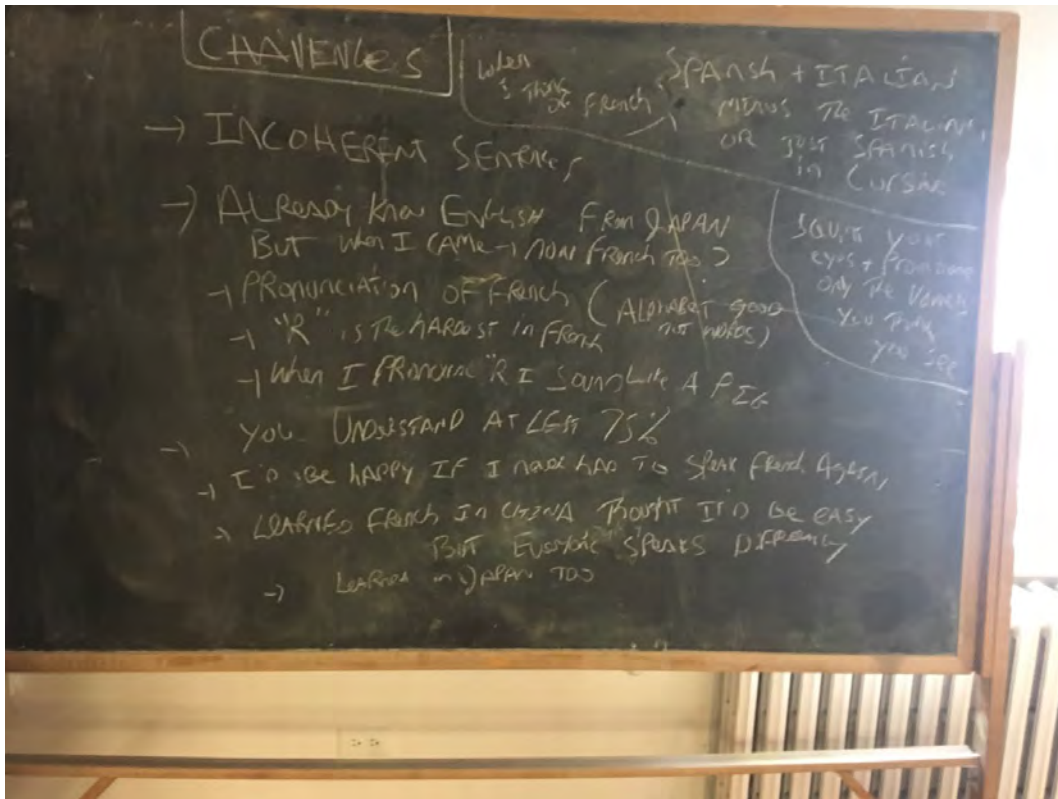 CHALLENGES
When
I think
of French
SPANISH + ITALIAN
MINUS THE ITALIAN,
OR JUST SPANISH
in CURSIVE
→ INCOHERENT SENTENCES
→ ALREADY KNOW ENGLISH FROM JAPAN
BUT when I CAME → NOW FRENCH TOO?
→ PRONUNCIATION OF FRENCH (ALPHABET GOOD
not words)
→ "R" is the hardest in French
→ When I PRONOUNCE "R I SOUND Like A PIG
YOU UNDERSTAND AT LEST 75%
→ I'D BE HAPPY IF I never HAD TO SPEAK French AGAIN
→ LEARNED FRENCH IN CHINA THOUGHT IT'D BE EASY
BUT EVERYONE SPEAKS DIFFERENTLY
→ LEARNED in JAPAN TOO
SQUINT YOUR
eyes + PRONOUNCE
only THE VOWELS
YOU THINK
YOU SEE